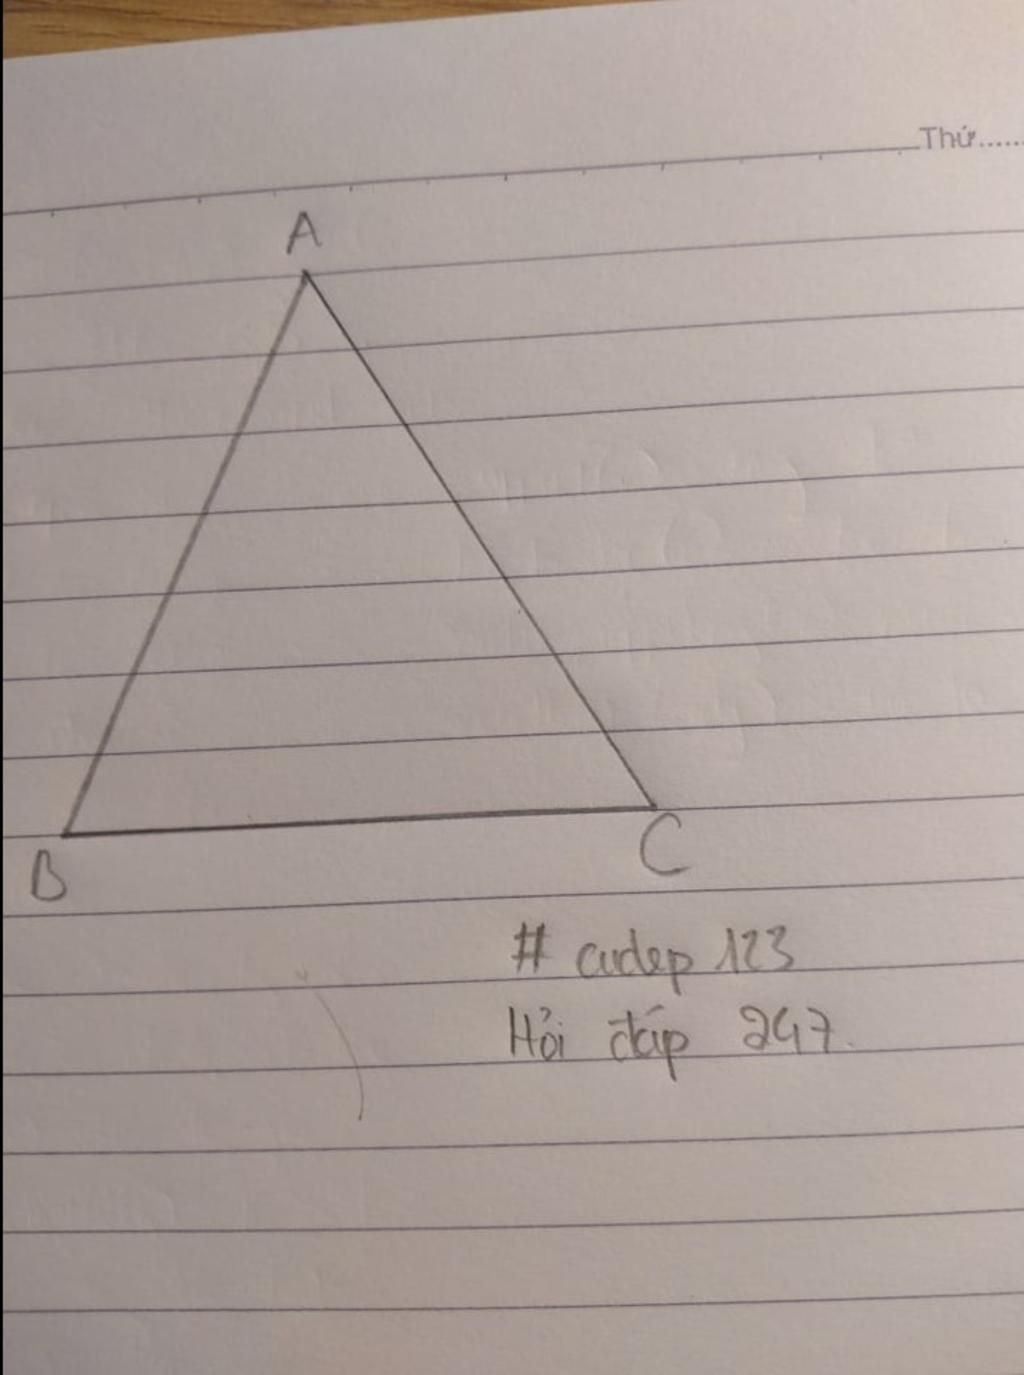 Thứ......
A
B
C
# cudep 123
Hỏi đáp 247.